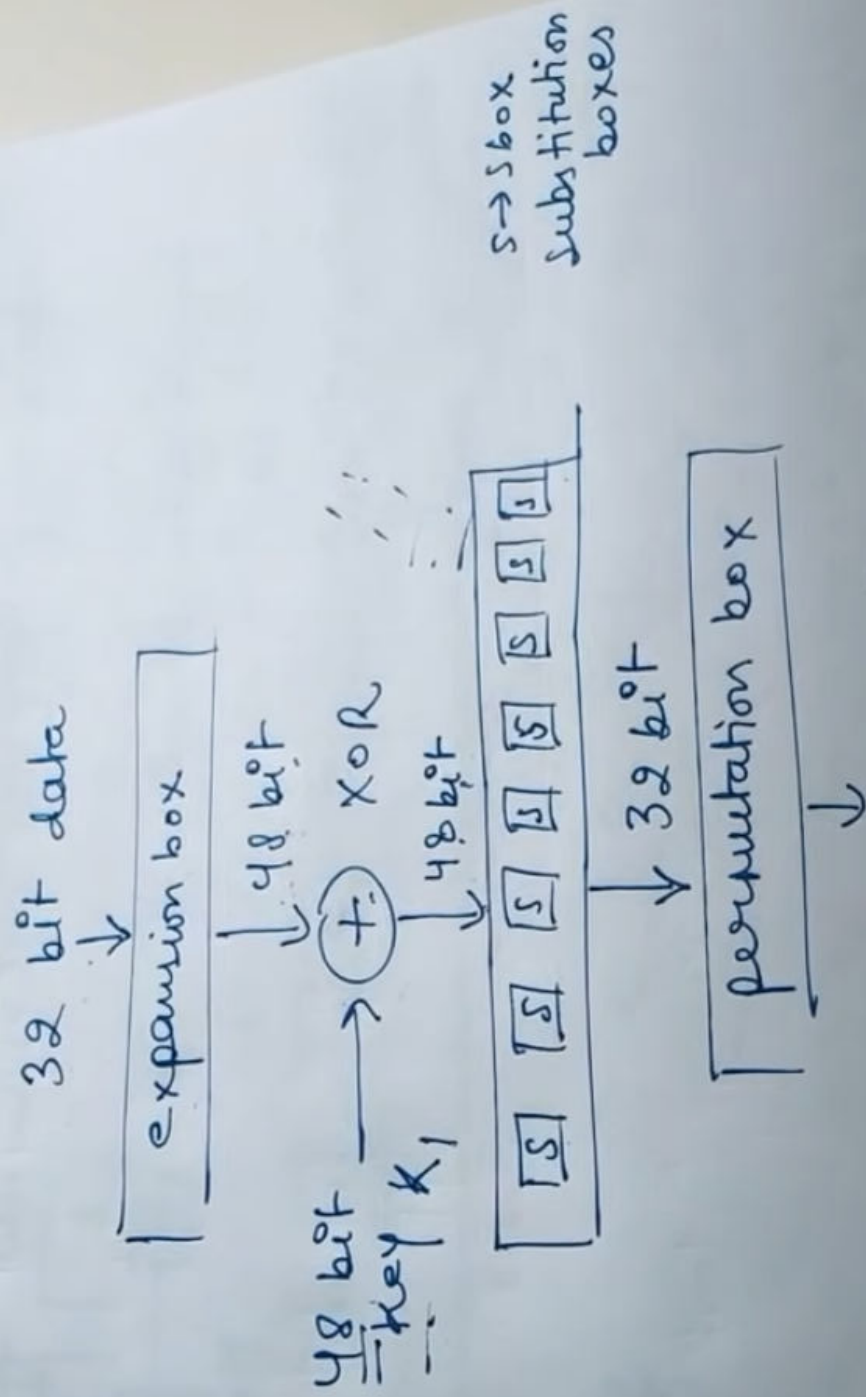 32 bit data
↓
expansion box
↓ 48 bit
48 bit
Key K1
→ + XOR
↓ 48 bit
S S S S S S S S
s→sbox
substitution
boxes
↓ 32 bit
permutation box
↓